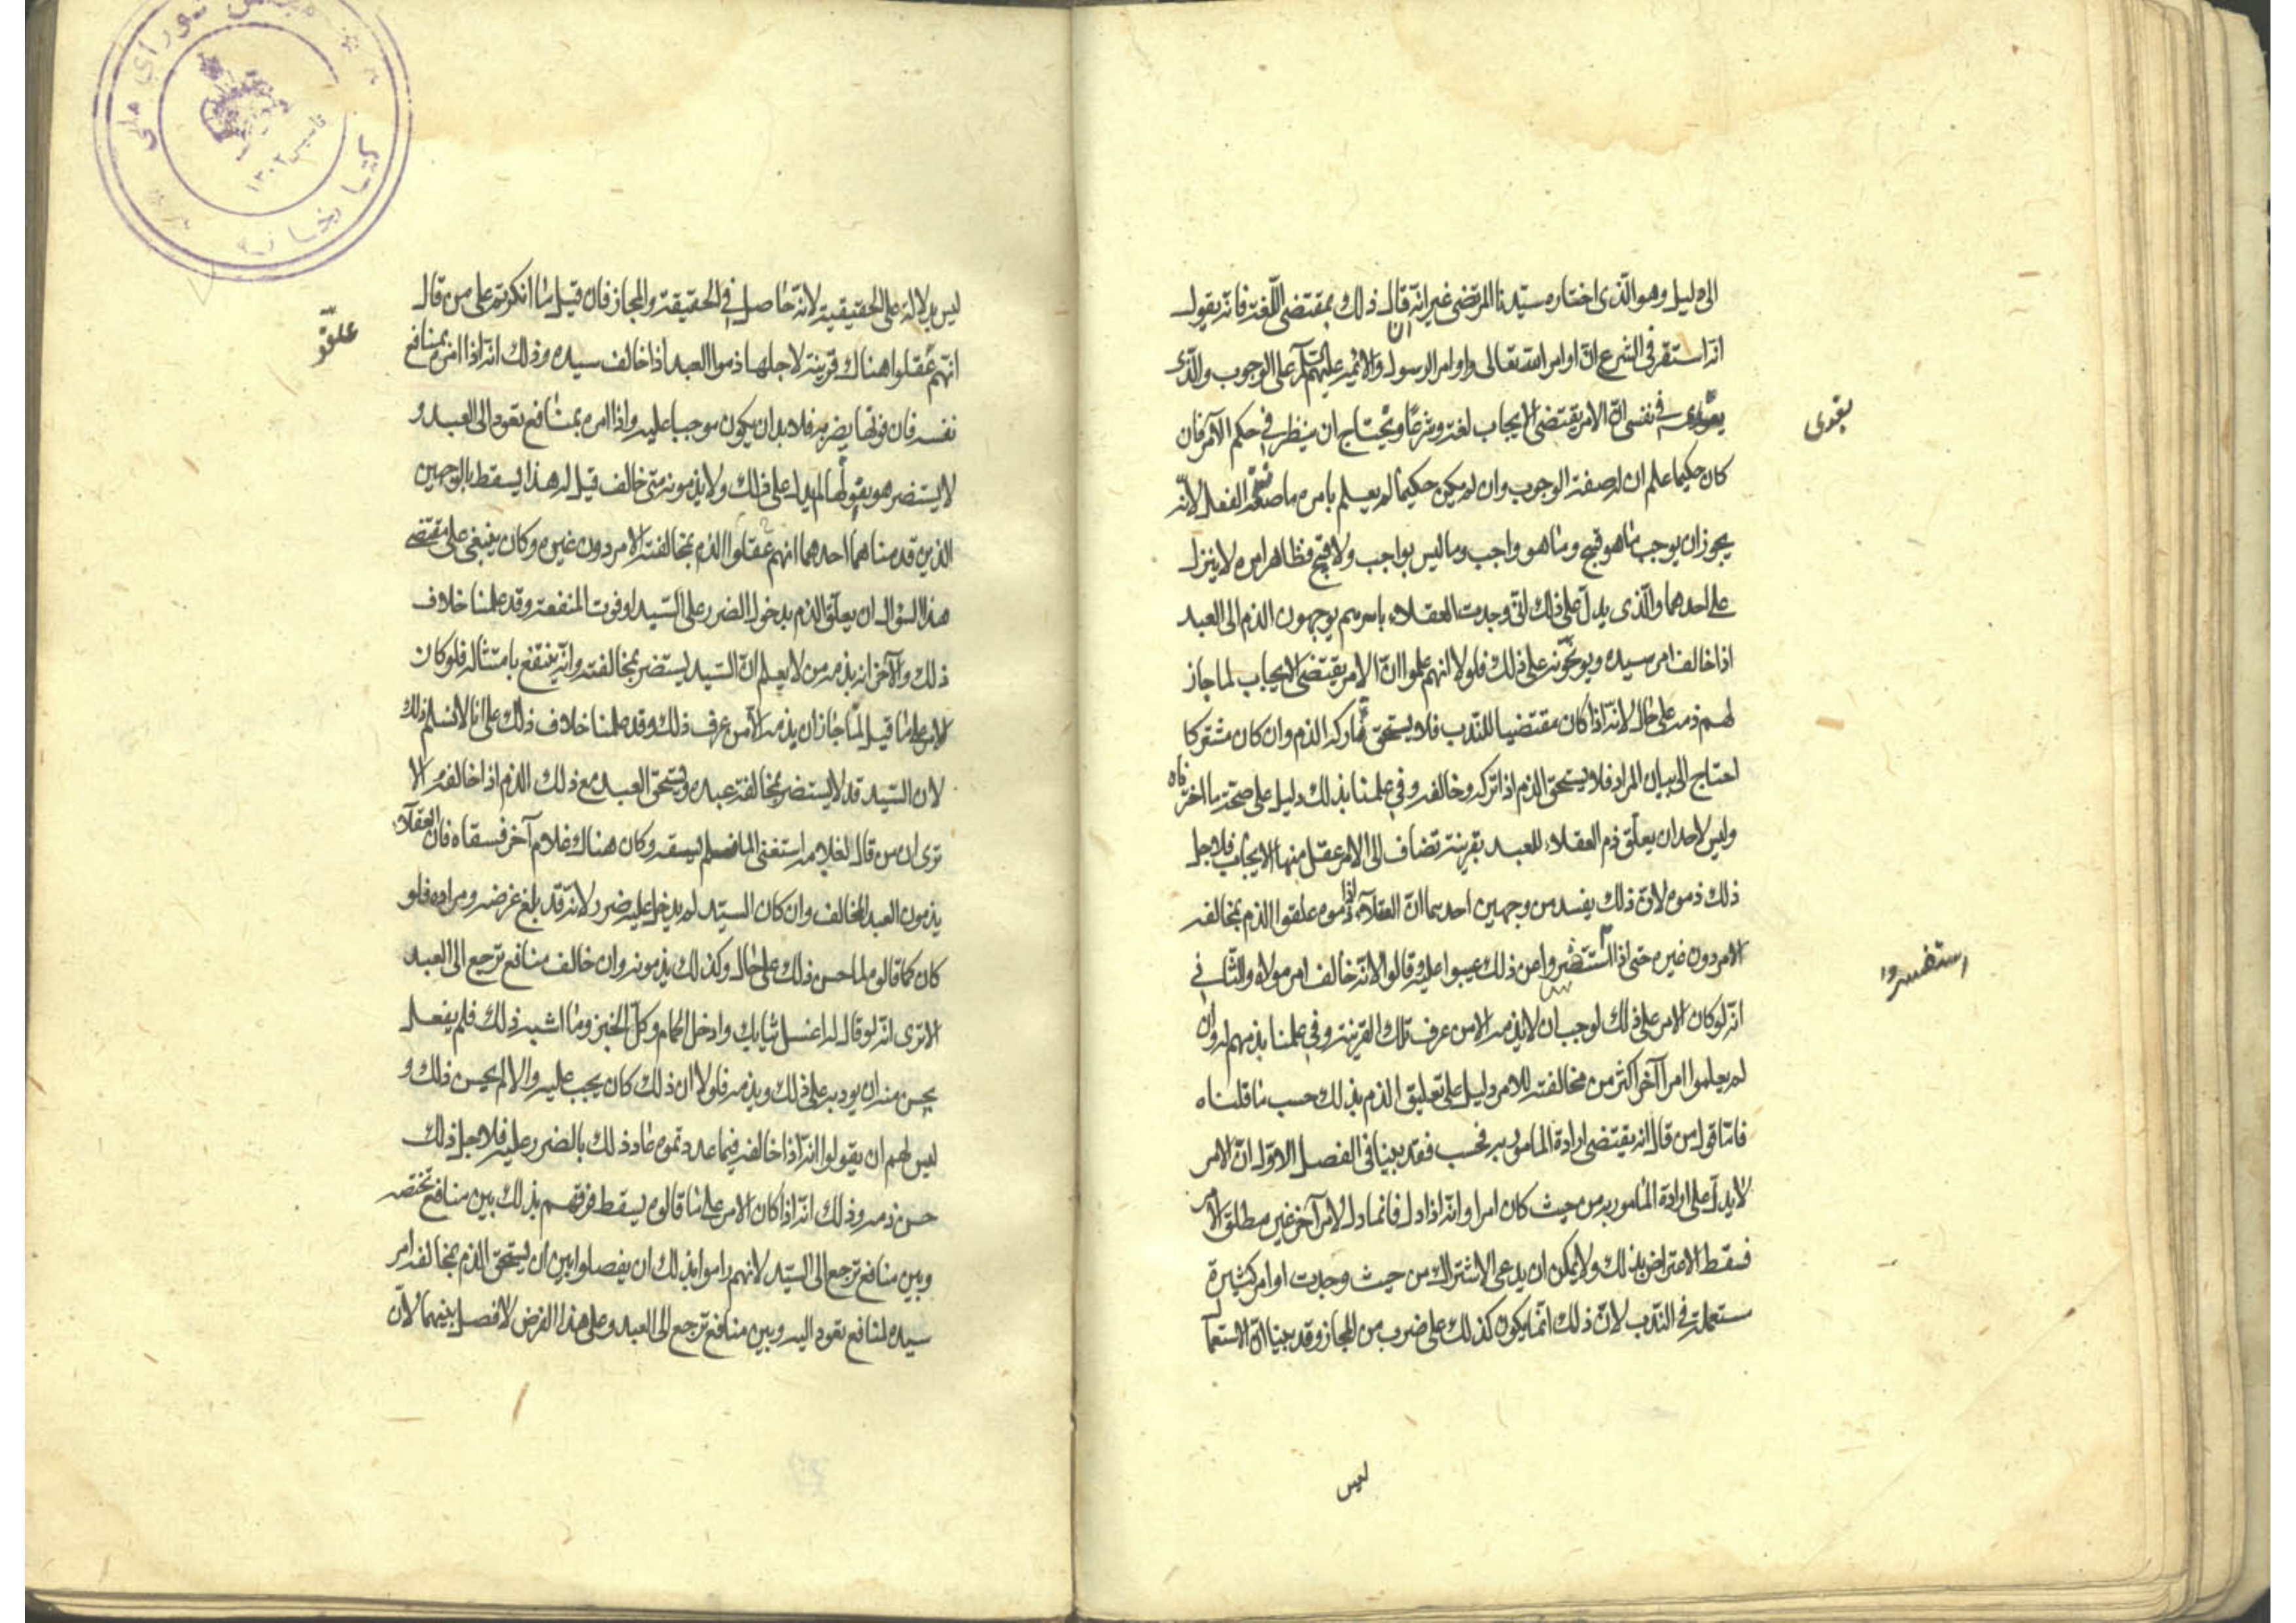 الى دليل وهو الّذى اختاره سيّدنا المرتضى غير انّه قال ان ذلك بمقتضى اللّغة فانّه يقول
انّه استقر فى الشرع انّ اوامر الله تعالى واوامر الرسول والائمة عليهم على الوجوب والّذى
يقوى
فى نفسى انّ الامر يقتضى الايجاب لغة وشرعًا ويحتاج ان ينظر فى حكم الآمر فان
كان حكيما علم ان له صفة الوجوب وان لم يكن حكيمًا لم يعلم بامره ما صفة الفعل لانّه
يجوز ان يوجب ما هو قبيح وما هو واجب وما ليس بواجب ولا قبيح فظاهر امره لا ينزل
على احدهما والّذى يدلّ على ذلك انّى وجدت العقلاء باسرهم يوجهون الذم الى العبد
اذا خالف امر سيده ويوبّخونه على ذلك فلولا انهم علموا انّ الامر يقتضى الايجاب لما جاز
لهم ذمه على حال لانّه اذا كان مقتضيا للنّدب فلا يستحق تاركه الذم وان كان مشتركا
احتاج الى بيان المراد فلا يستحق الذم اذا تركه وخالفه وفى علمنا بذلك دليل على صحّة ما اخترناه
وليس لاحد ان يعلّق ذم العقلاء للعبد بقرينة تضاف الى الامر عقل منها الايجاب فلاجل
ذلك ذموه لانّ ذلك يفسد من وجهين احدهما انّ العقلاء اذا ذموه علقوا الذم بمخالفة
الامر دون غيره حتى اذا استفسروا عن ذلك عيبوا عليه وقالوا لانّه خالف امر مولاه والثّانى
استفسروا
انّه لو كان الامر على ذلك لوجب ان لا يذمه الا من عرف تلك القرينة وفى علمنا بذمهم له وان
لم يعلموا امرا آخر اكثر من مخالفته للامر دليل على تعليق الذم بذلك حسب ما قلناه
فامّا قول من قال انه يقتضى ارادة المامور به فحسب فقد بينا فى الفصل الاوّل انّ الامر
لا يدلّ على ارادة المامور به من حيث كان امرا وانّه اذا دل فانما دل لامر آخر غير مطلق الامر
فسقط الاعتراض بذلك ولا يمكن ان يدعى الاشتراك من حيث وجدت اوامر كثيرة
مستعملة فى النّدب لانّ ذلك انّما يكون كذلك على ضرب من المجاز وقد بينا انّ الاستعمال
ليس
ليس بدلالة على الحقيقية لانّه حاصل فى الحقيقة والمجاز فان قيل ما انكرتم على من قال
علّقوا
انّهم عقلوا هناك قرينة لاجلها ذموا العبد اذا خالف سيده وذلك انّه اذا امره بمنافع
نفسه فان فوتها يضر به فلا بد ان يكون موجبا عليه واذا امره بمنافع تعود الى العبد و
لا يستضر هو بفوتها لم يدل على ذلك ولا يذمونه متى خالف قيل له هذا يسقط بالوجهين
الذين قدمناهما احدهما انهم علّقوا الذم بمخالفة الامر دون غيره وكان ينبغى على مقتضى
هذا السؤال ان يعلّق الذم بدخول الضرر على السّيد او فوت المنفعة وقد علمنا خلاف
ذلك والآخر انه يذمه من لا يعلم انّ السّيد يستضر بمخالفته وانّه ينتفع بامتثاله فلو كان
الامر على ما قيل لمّا جاز ان يذمه الا من عرف ذلك وقد علمنا خلاف ذلك على انا لا نسلم ذلك
لان السّيد قد لا يستضر بمخالفة عبده ويستحق العبد مع ذلك الذم اذا خالفه الا
ترى ان من قال لغلامه اسقنى الماء فلم يسقه وكان هناك غلام آخر فسقاه فان العقلاء
يذمون العبد المخالف وان كان السيّد لم يدخل عليه ضرر لانّه قد بلغ غرضه ومراده فلو
كان كما قالوه لما حسن ذلك على حال وكذلك يذمونه وان خالف منافع ترجع الى العبد
الا ترى انّه لو قال له اغسل ثيابك وادخل الحمام وكل الخبز وما اشبه ذلك فلم يفعل
يحسن منه ان يودبه على ذلك ويذمه فلولا ان ذلك كان يجب عليه والا لم يحسن ذلك و
ليس لهم ان يقولوا انّه اذا خالفه فيما عددتموه عاد ذلك بالضرر عليه فلاجل ذلك
حسن ذمه وذلك انّه اذا كان الامر على ما قالوه يسقط فرقهم بذلك بين منافع تختصه
وبين منافع ترجع الى السّيد لانهم راموا بذلك ان يفصلوا بين ان يستحق الذم بمخالفة امر
سيده لمنافع تعود اليه وبين منافع ترجع الى العبد وعلى هذا الفرض لا فصل بينهما لانّ